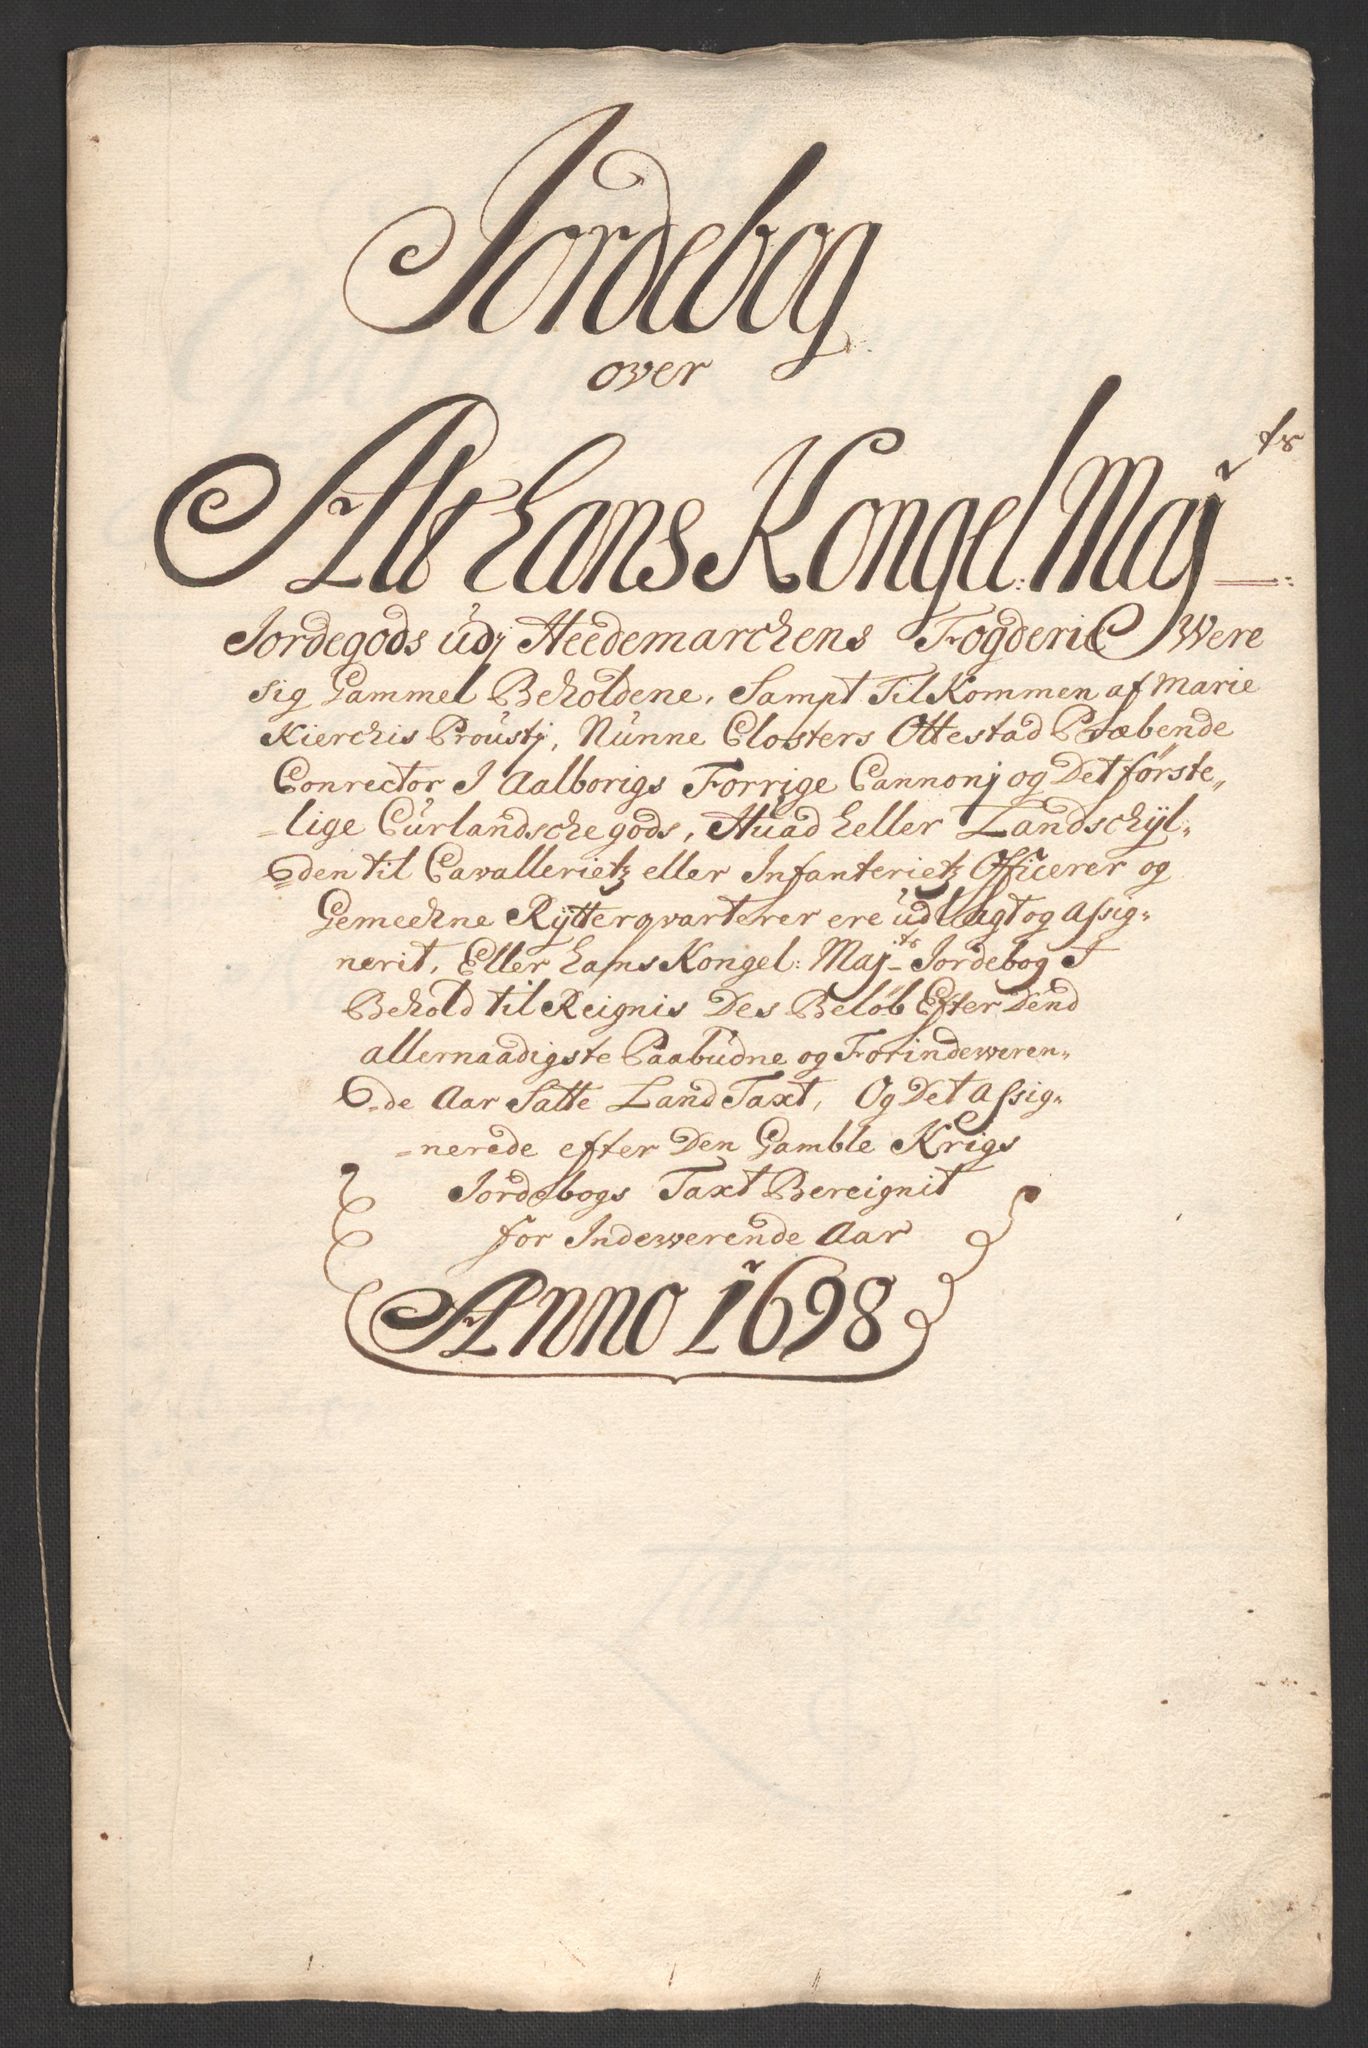 Jordebog
over
Alt hans Kongel: Maj^ts:
Jordegods udj Heedemarchens Fogderie Were
sig Gammel Beholdene, Sampt Tilkommen af Marie
Kierchis Proustj, Nunne Closters Ottestad Præbende
Conrector I Aalborigs Forrige Cannonj og Det første„
„lige Curlandsche gods, Huad heller Landschyl„
„den til Cavallerietz eller Infanterietz Officerer og
Gemeehne Rytterqvarterer ere udlagt og assig„
nerit, Eller hans Kongel: Maj^ts Jordebog I
Behold til Reignis Des Beløb Efter Dend
allernaadigste Paabudne og For indeweren„
„de Aar Satte Land Taxt, Og Det assig„
„nerede efter Den Gamble Krigs
Jordebogs Taxt Bereignit
for Indewerende Aar
Anno 1698